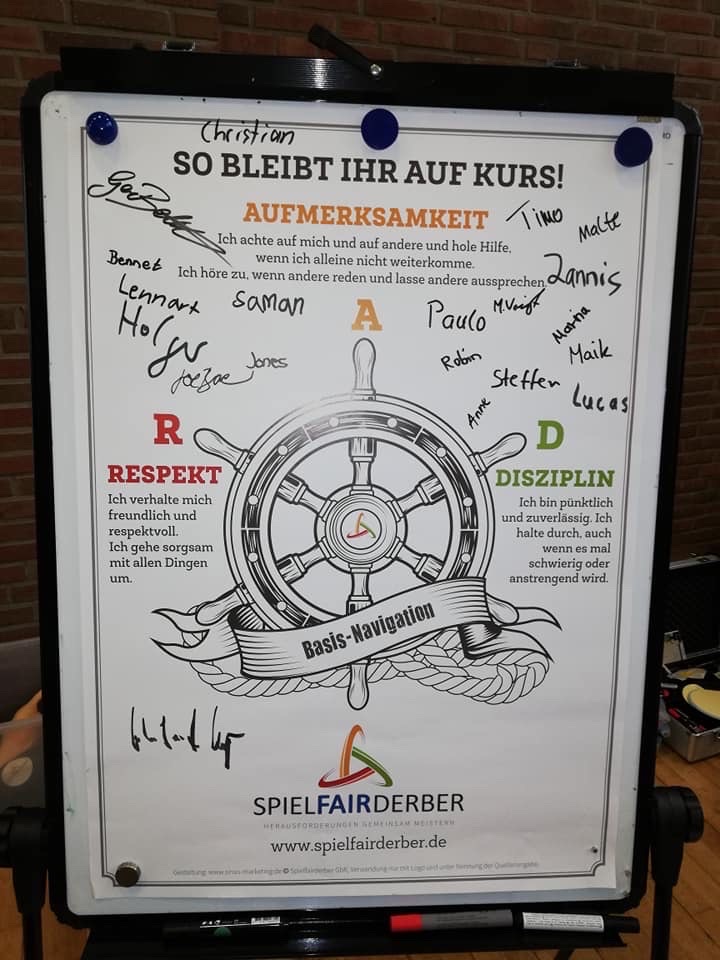 Christian
SO BLEIBT IHR AUF KURS!
AUFMERKSAMKEIT
Timo
Malte
Ich achte auf mich und auf andere und hole Hilfe,
wenn ich alleine nicht weiterkomme.
Ich höre zu, wenn andere reden und lasse andere aussprechen.
Bennet
Jannis
Lennart
Saman
A
Paulo
M. Voigt
Martina
Holger
Jones
Robin
Maik
Steffen
Lucas
Anne
R
D
RESPEKT
Ich verhalte mich
freundlich und
respektvoll.
Ich gehe sorgsam
mit allen Dingen
um.
DISZIPLIN
Ich bin pünktlich
und zuverlässig. Ich
halte durch, auch
wenn es mal
schwierig oder
anstrengend wird.
Basis-Navigation
SPIELFAIRDERBER
HERAUSFORDERUNGEN GEMEINSAM MEISTERN
www.spielfairderber.de
Gestaltung: www.pinax-marketing.de © Spielfairderber GbR, Verwendung nur mit Logo und unter Nennung der Quellenangabe.